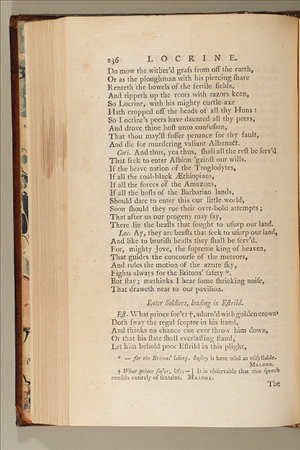 236 LOCRINE.
Do mow the wither'd grass from off the earth,
Or as the ploughman with his piercing share
Renteth the bowels of the fertile fields,
And rippeth up the roots with razors keen,
So Locrine, with his mighty curtle-axe
Hath cropped off the heads of all thy Huns:
So Locrine's peers have daunted all thy peers,
And drove thine host unto confusion,
That thou may'st suffer penance for thy fault,
And die for murdering valiant Albanact.
Cori. And thus, yea thus, shall all the rest be serv'd
That seek to enter Albion 'gainst our wills.
If the brave nation of the Troglodytes,
If all the coal-black Æthiopians,
If all the forces of the Amazons,
If all the hosts of the Barbarian lands,
Should dare to enter this our little world,
Soon should they rue their over-bold attempts;
That after us our progeny may say,
There lie the beasts that sought to usurp our land.
Loc. Ay, they are beasts that seek to usurp our land,
And like to brutish beasts they shall be serv'd.
For, mighty Jove, the supreme king of heaven,
That guides the concourse of the meteors,
And rules the motion of the azure sky,
Fights always for the Britons' safety *.
But stay; methinks I hear some shrieking noise,
That draweth near to our pavilion.
Enter Soldiers, leading in Estrild.
Est. What prince soe'er †, adorn'd with golden crown
Doth sway the regal sceptre in his hand,
And thinks no chance can ever throw him down,
Or that his state shall everlasting stand,
Let him behold poor Estrild in this plight,
* — for the Britons' safety. Safety is here used as trisyllable.
MALONE.
† What prince soe'er, &c.—] It is observable that this speech
consists entirely of sextains. MALONE.
The